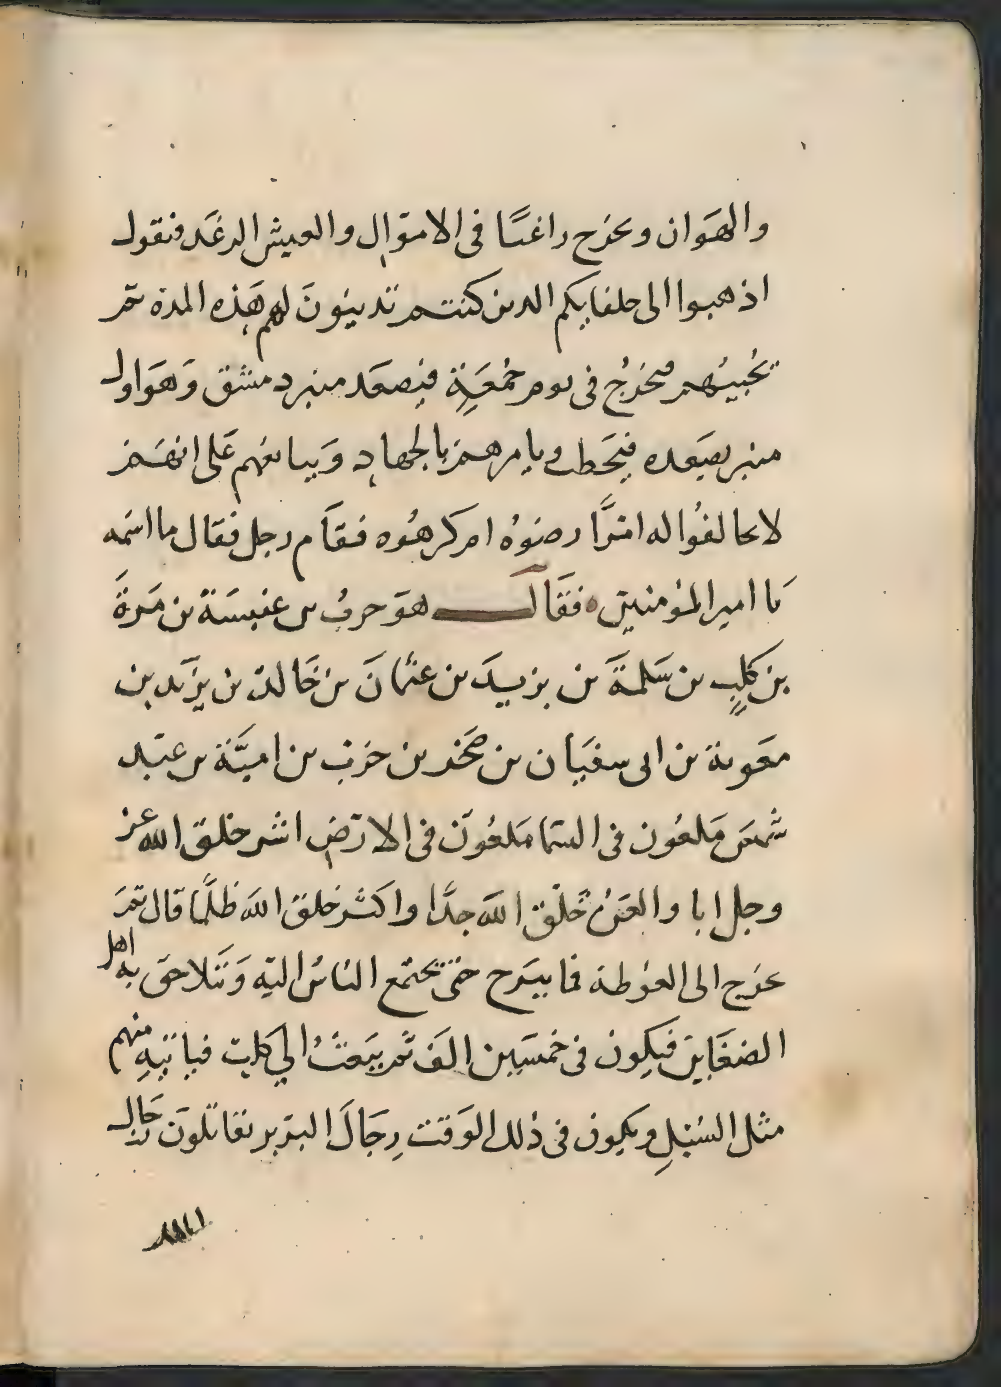 والهوان ويخرج راغبا في الاموال والعيش الرغد فنقول
اذهبوا الى حلفايكم الدين كنتم تدينون لهم هذه المدة ثم
تجيبهم فيخرج في يوم جمعة فيصعد منبر دمشق وهو اول
منبر يصعده فيخطب ويامرهم بالجهاد ويبايعهم على انهم
لا يخالفوا له امرا رضوه ام كرهوه فقام رجل فقال ما اسمه
يا امير المؤمنين فقال هو حرب بن عنبسة بن مرة
بن كليب بن سلمة بن يزيد بن عثمان بن خالد بن يزيد بن
معوية بن ابي سفيان بن صخر بن حرب بن امية بن عبد
شمس ملعون في السما ملعون في الارض اشر خلق الله عز
وجل ابا والعن خلق الله جدا واكثر خلق الله ظلما قال ثم
يخرج الى الغوطة فما يبرح حتى يجتمع الناس اليه وتتلاحق به اهل
الضغاين فيكون في خمسين الف ثم يبعث الي كلب فياتيه منهم
مثل السيل ويكون في ذلك الوقت رجال البربر يقاتلون رجال